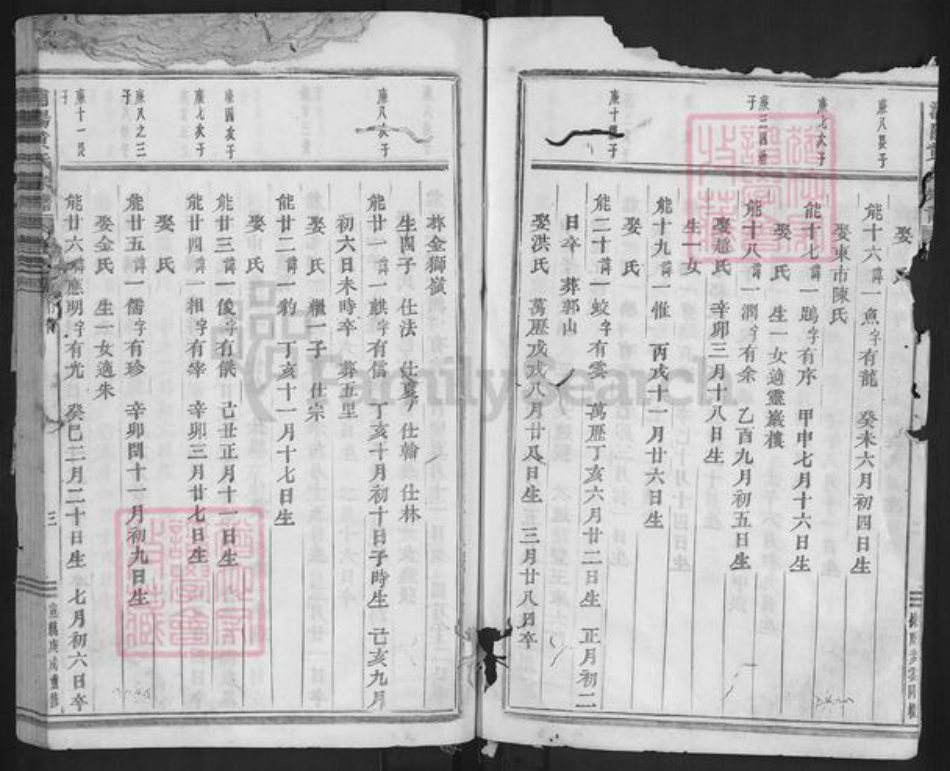 娶 氏
庚八長子
能十六諱一魚字有龍 癸未六月初四日生
娶東市陳氏
庚七次子
能十七諱一鵾字有序 甲申七月十六日生
娶 氏 生一女適靈巖樓
能十八諱一澗字有余 乙酉九月初五日生
娶趙氏 辛卯三月十八日生
生一女
能十九諱一惟 丙戌十一月廿六日生
娶 氏
庚十 子
能二十諱一蛟字有雲 萬歷丁亥六月廿二日生 正月初二
日卒 葬郭山
娶洪氏 萬歷戊戌八月廿八日生 三月廿八日卒
葬金獅嶺
生四子 仕法 仕夏 仕翰 仕林
庚八次子
能廿一諱一麒字有信 丁亥十月初十日子時生 己亥九月
初六日未時卒 葬五里
娶 氏 繼一子 仕宗
能廿二諱一豹 丁亥十一月十七日生
娶 氏
庚四次子
能廿三諱一俊字有傑 己丑正月十一日生
庚七次子
能廿四諱一相字有宰 辛卯三月廿七日生
娶 氏
庚八之三子
能廿五諱一儒字有珍 辛卯閏十一月初九日生
娶金氏 生一女適朱
庚十一長子
能廿六諱應明字有光 癸巳二月二十日生 七月初六日卒
三
FamilySearch